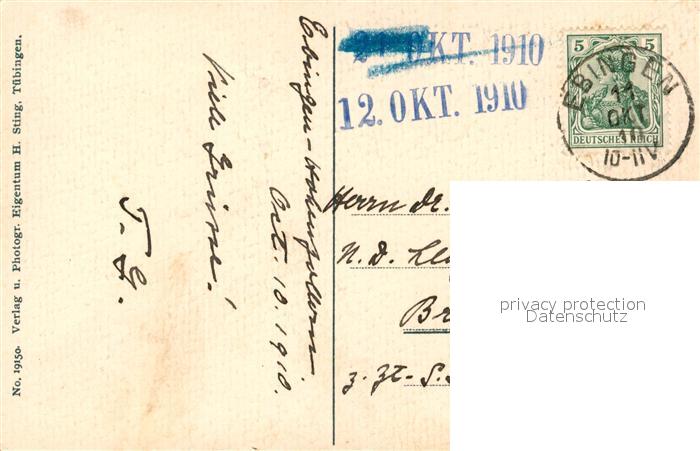 No. 19150. Verlag u. Photogr. Eigentum H. Sting, Tübingen.
Ebingen-Hohenzollern.
Oct. 10. 1910.
Viele Grüsse!
OKT. 1910
12. OKT. 1910
5 5
DEUTSCHES REICH
EBINGEN
11
OKT
10
10-11V
Herrn Dr.
N. D.
Br
z. Zt. S.
privacy protection
Datenschutz